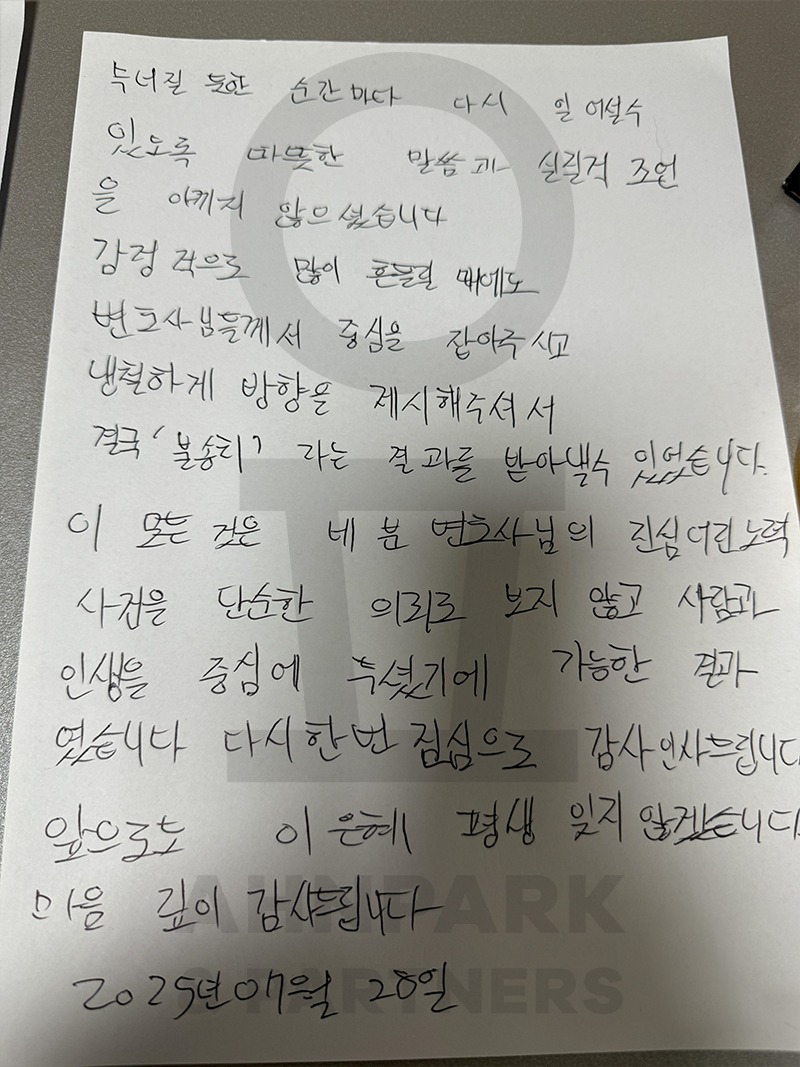 무너질 듯한 순간마다 다시 일어설수
있도록 따뜻한 말씀과 실질적 조언
을 아끼지 않으셨습니다
감정적으로 많이 흔들릴 때에도
변호사님들께서 중심을 잡아주시고
냉철하게 방향을 제시해주셔서
결국 '불송치' 라는 결과를 받아낼수 있었습니다.
이 모든 것은 네 분 변호사님의 진심어린 노력
사건을 단순한 의뢰로 보지 않고 사람과
인생을 중심에 두셨기에 가능한 결과
였습니다 다시한번 진심으로 감사인사드립니다
앞으로도 이 은혜 평생 잊지 않겠습니다
마음 깊이 감사드립니다
2025년 07월 28일
AHNPARK
& PARTNERS